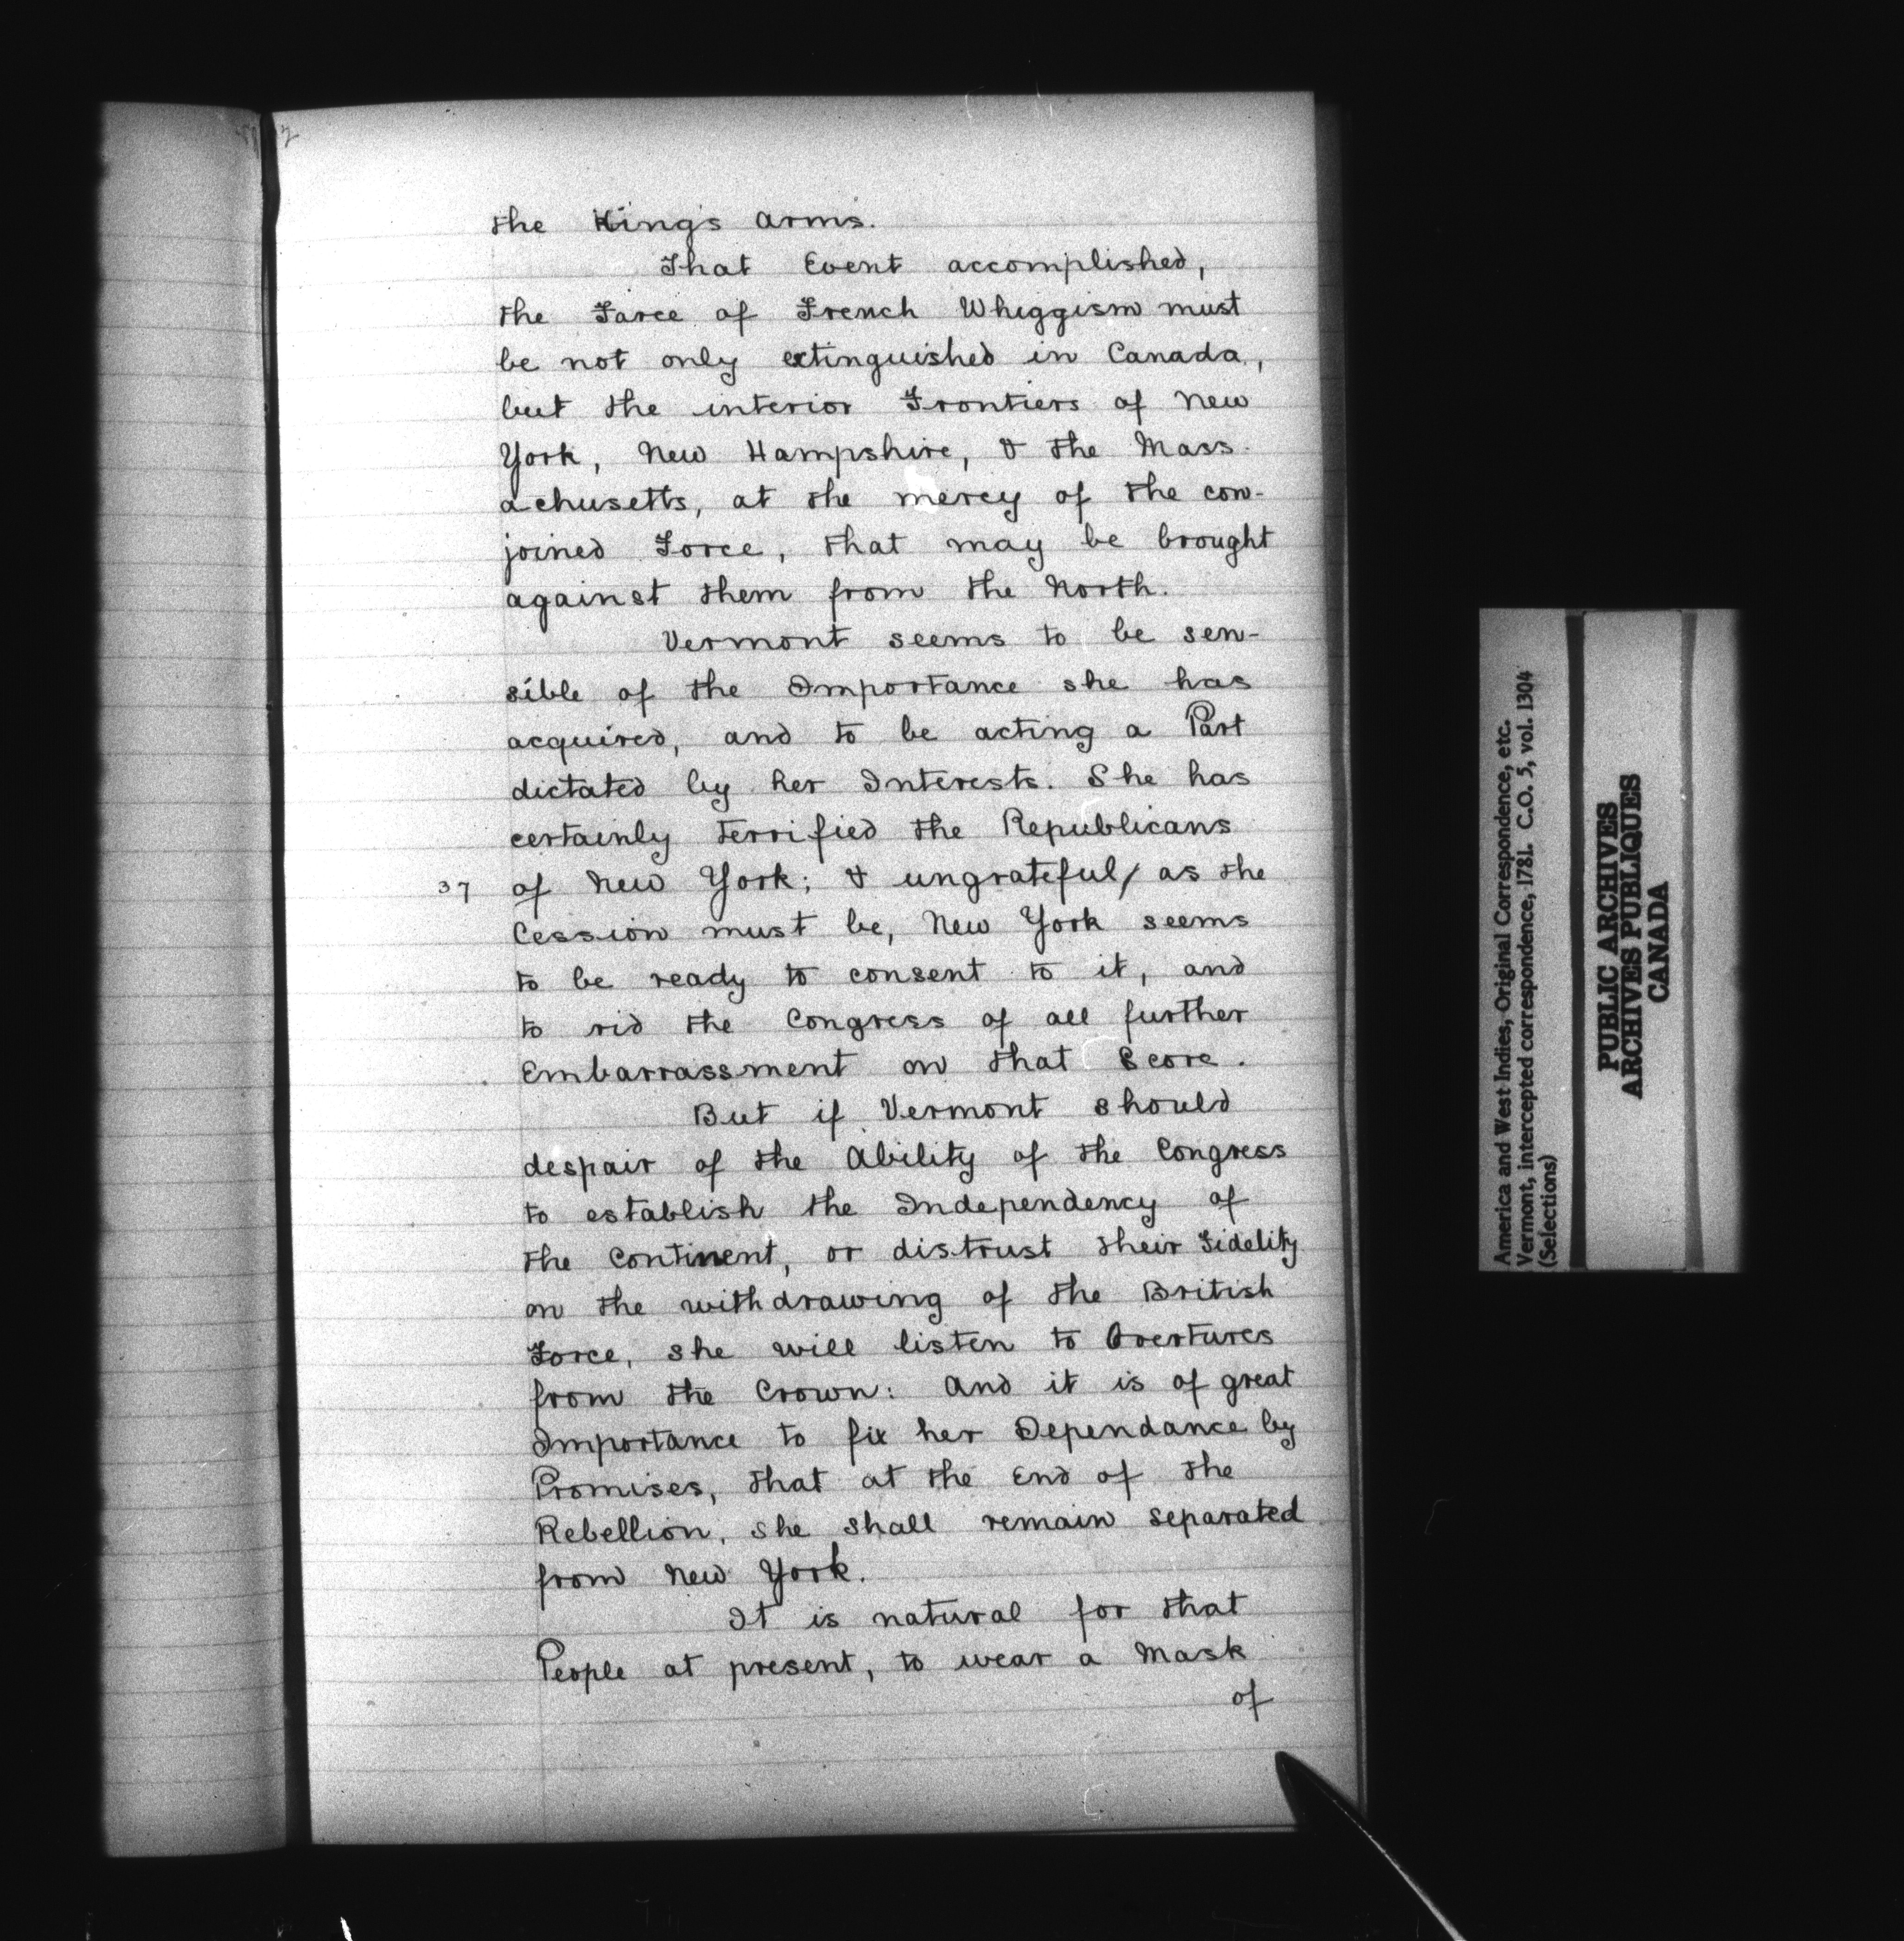 the King's Arms.
That Event accomplished,
the Farce of French Whiggism must
be not only extinguished in Canada,
but the interior Frontiers of New
York, New Hampshire, & the Mass-
achusetts, at the mercy of the con-
joined Force, that may be brought
against them from the North.
Vermont seems to be sen-
sible of the Importance she has
acquired, and to be acting a Part
dictated by her Interests. She has
certainly terrified the Republicans
37 of New York; & ungrateful/ as the
Cession must be, New York seems
to be ready to consent to it, and
to rid the Congress of all further
Embarrassment on that Score.
But if Vermont should
despair of the Ability of the Congress
to establish the Independency of
the Continent, or distrust their Fidelity
on the withdrawing of the British
Force, she will listen to Overtures
from the Crown: And it is of great
Importance to fix her Dependance by
Promises, that at the End of the
Rebellion, she shall remain separated
from New York.
It is natural for that
People at present, to wear a Mask
of
America and West Indies, Original Correspondence, etc.
Vermont, intercepted correspondence, 1781. C.O. 5, vol. 1304
(Selections)
PUBLIC ARCHIVES
ARCHIVES PUBLIQUES
CANADA